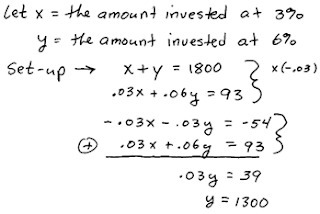 Let x = the amount invested at 3%
y = the amount invested at 6%
Set-up → x + y = 1800 } x(-.03)
.03x + .06y = 93
-.03x - .03y = -54
⊕ .03x + .06y = 93
.03y = 39
y = 1300